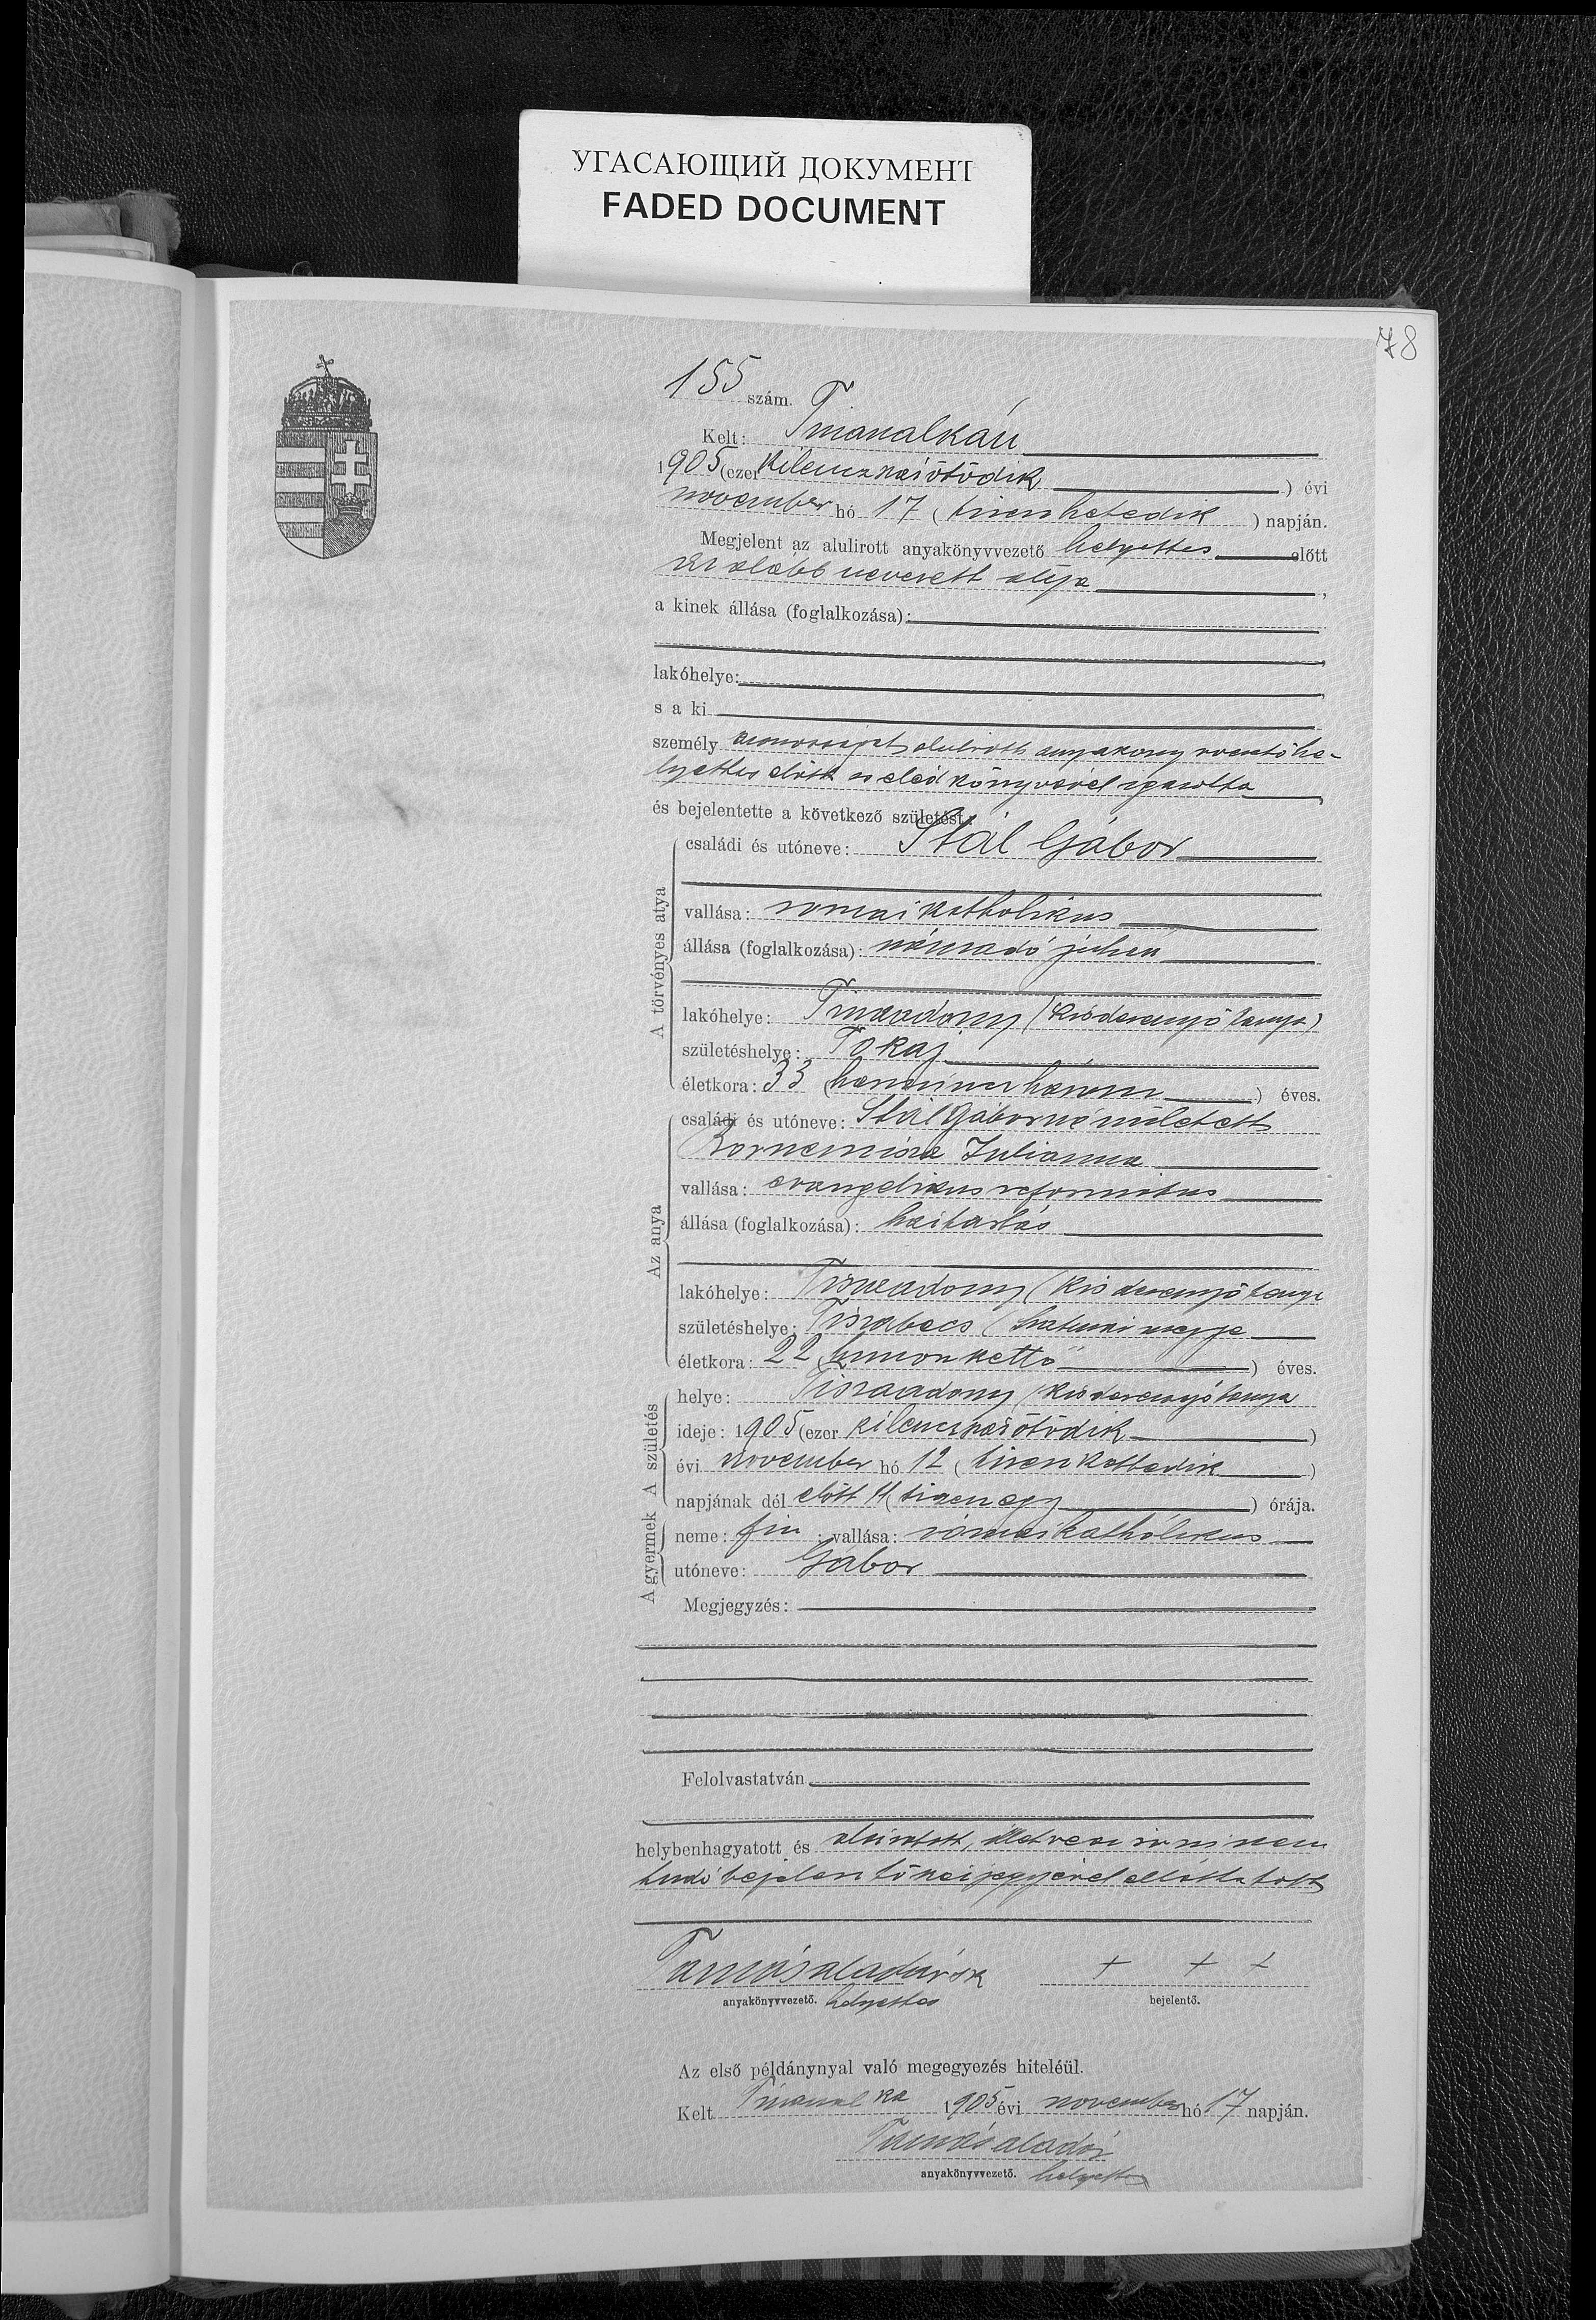 УГАСАЮЩИЙ ДОКУМЕНТ
FADED DOCUMENT
78
155 szám.
Kelt:
1905 (ezer kilenczszázötödik) évi
november hó 17 (tizenhetedik) napján.
Megjelent az alulirott anyakönyvvezető helyettes előtt
az alább nevezett atya,
a kinek állása (foglalkozása):
lakóhelye:
s a ki
személyazonosságát alulirott anyakönyvvezető he-
lyettes előtt cselédkönyvével igazolta,
és bejelentette a következő születést:
A törvényes atya
családi és utóneve: Stál Gábor
vallása: római katholikus
állása (foglalkozása): számadó juhász
lakóhelye: Tiszaadony (Kisderenyő tanya)
születéshelye: Tokaj
életkora: 33 (harminczhárom) éves.
Az anya
családi és utóneve: Stál Gáborné született
Bornemisza Julianna
vallása: evangelikus református
állása (foglalkozása): háztartás
lakóhelye: Tiszaadony (Kisderenyő tanya
születéshelye: Tiszabecs (Szatmár megye
életkora: 22 (huszonkettő) éves.
A születés
helye: Tiszaadony (Kisderenyő tanya
ideje: 1905 (ezer kilenczszázötödik)
évi november hó 12 (tizenkettedik)
napjának dél előtt 11 (tizenegy) órája.
A gyermek
neme: fiu; vallása: római katholikus
utóneve: Gábor
Megjegyzés:
Felolvastatván
helybenhagyatott és aláiratott, illetve az irni nem
tudó bejelentő kézjegyével elláttatott
Tamás Aladár + + +
anyakönyvvezető. helyettes bejelentő.
Az első példánynyal való megegyezés hiteléül.
Kelt 1905 évi november hó 17 napján.
Tamás Aladár
anyakönyvvezető. helyettes